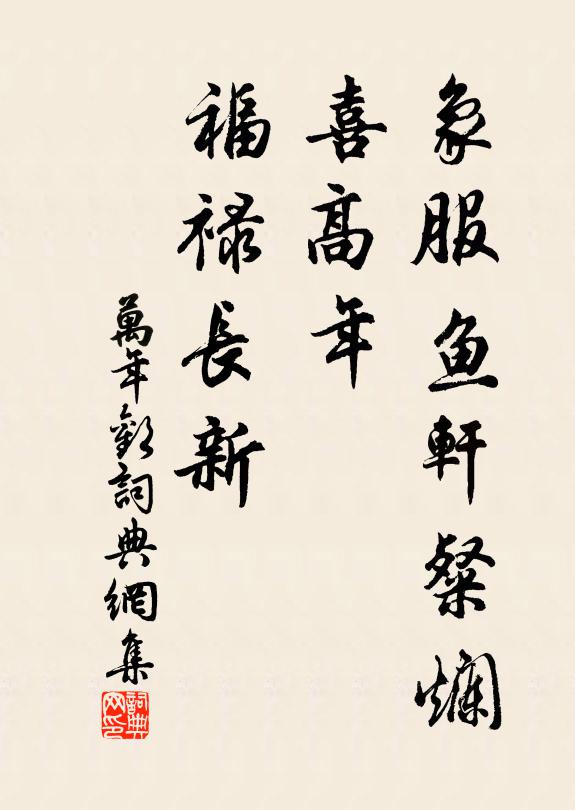 象服魚軒粲爛
喜高年
福禄長新
萬年歡詞典網集
詞典网印